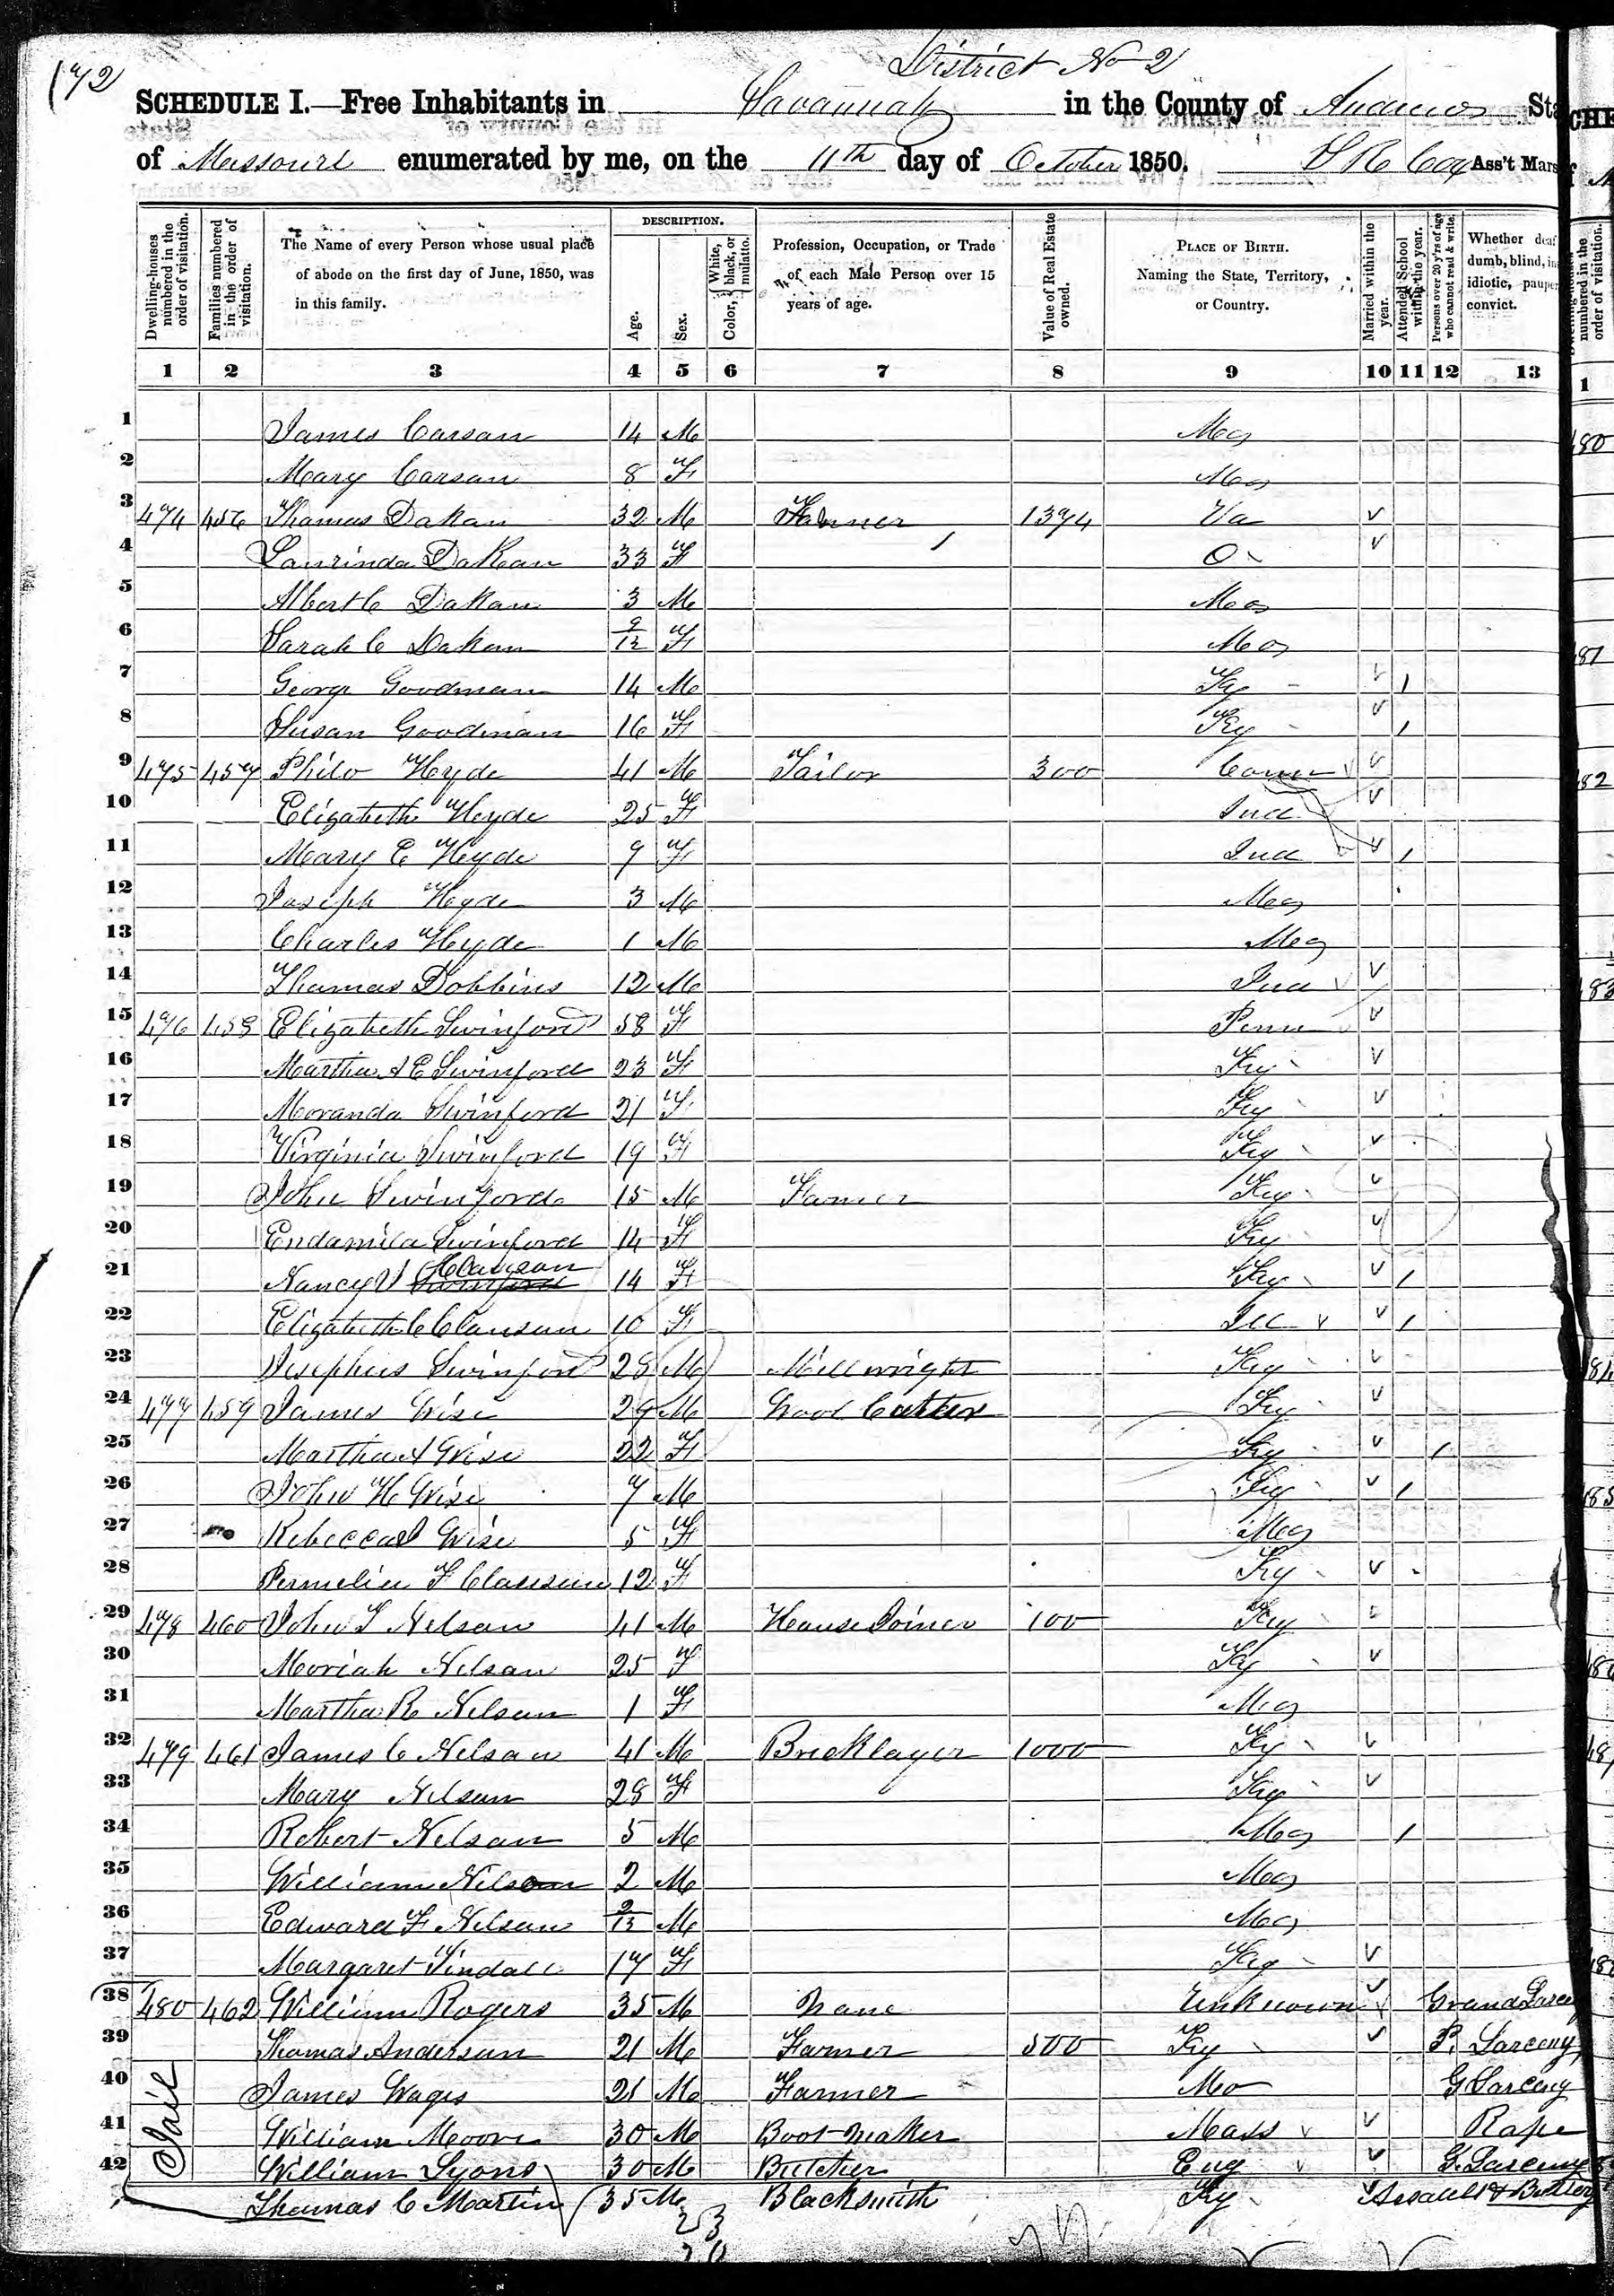 District No 2
SCHEDULE I.—Free Inhabitants in Savannah in the County of Andrew Sta
of Missouri enumerated by me, on the 11th day of October 1850. Ass't Mars
Dwelling-houses numbered in the order of visitation.
Families numbered in the order of visitation.
The Name of every Person whose usual place of abode on the first day of June, 1850, was in this family.
DESCRIPTION.
Age.
Sex.
Color, White, black, or mulatto.
Profession, Occupation, or Trade of each Male Person over 15 years of age.
Value of Real Estate owned.
PLACE OF BIRTH. Naming the State, Territory, or Country.
Married within the year.
Attended School within the year.
Persons over 20 y'rs of age who cannot read & write.
Whether deaf dumb, blind, in idiotic, pauper convict.
1 2 3 4 5 6 7 8 9 10 11 12 13
1 James Carson 14 M Mo
2 Mary Carson 8 F Mo
3 474 456 Thomas Dakan 32 M 1374 Va
4 Laurinda Dakan 33 F O
5 Albert C Dakan 3 M Mo
6 Sarah C Dakan 9/12 F Mo
7 George Goodman 14 M Ky 1
8 Susan Goodman 16 F Ky 1
9 475 457 Philo Hyde 41 M Tailor 300 Conn
10 Elizabeth Hyde 25 F Ind
11 Mary E Hyde 9 F Ind 1
12 Joseph Hyde 3 M Mo
13 Charles Hyde 1 M Mo
14 Thomas Dobbins 12 M Ind
15 476 458 Elizabeth Swinford 58 F Penn
16 Martha A E Swinford 23 F Ky
17 Moranda Swinford 21 F Ky
18 Virginia Swinford 19 F Ky
19 John Swinford 15 M Farmer Ky
20 Endamila Swinford 14 F Ky
21 Nancy V Clauson 14 F Ky 1
22 Elizabeth C Clauson 10 F Ill 1
23 Josephus Swinford 28 M Millwright Ky
24 477 459 James Wise 29 M Wood Cutter Ky
25 Martha A Wise 22 F Ky 1
26 John H Wise 7 M Ky 1
27 Rebecca Wise 5 F Mo
28 Permelia F Clauson 12 F Ky
29 478 460 John T Nelson 41 M House Joiner 100 Ky
30 Moriah Nelson 25 F Ky
31 Martha R Nelson 1 F Mo
32 479 461 James C Nelson 41 M Bricklayer 1000 Ky
33 Mary Nelson 28 F Ky
34 Robert Nelson 5 M Mo 1
35 William Nelson 2 M Mo
36 Edward F Nelson 2/12 M Mo
37 Margaret Tindall 17 F Ky
38 480 462 William Rogers 35 M None Unknown Grand Larceny
39 Thomas Anderson 21 M Farmer 500 Ky P. Larceny
40 James Wages 21 M Farmer Mo G Larceny
41 William Moore 30 M Boot maker Mass Rape
42 William Lyons 30 M Butcher Eng G. Larceny
Thomas C Martin 35 M Blacksmith Ky Assault & Battery
Jail